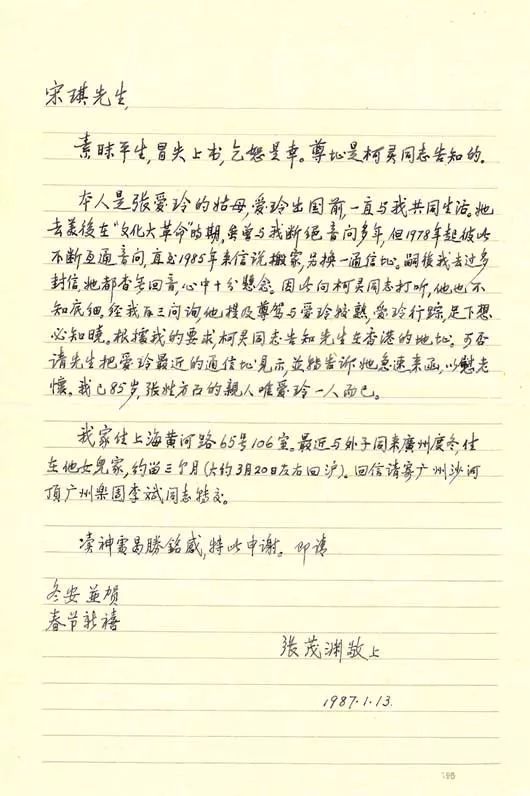 宋琪先生,
素昧平生,冒失上书,乞恕是幸。尊址是柯灵同志告知的.
本人是张爱玲的姑母,爱玲出国前,一直与我共同生活。她
去美後在"文化大革命"时期,虽曾与我断絕音问多年,但1978年起彼此
不断互通音问,直至1985年来信说搬家,另换一通信址。嗣後我去过多
封信,她都杳無回音,心中十分懸念。因此向柯灵同志打听,他也不
知底细,经我再三问询他提及尊驾与爱玲较熟,爱玲行踪,足下想
必知曉。根據我的要求柯灵同志告知先生在香港的地址。可否
请先生把爱玲最近的通信址见示,並转告诉她急速来函,以慰老
懷。我已85岁,张姓方面的親人唯爱玲一人而已。
我家住上海黄河路65号106室。最近与外子同来廣州度冬住
在他女兒家,約留三个月(大约3月20日左右回沪)。回信请寄广州沙河
頂广州乐团李斌同志转交。
凟神需曷勝銘感,特此申谢。即请
冬安並贺
春节新禧
张茂渊敬上
1987.1.13.